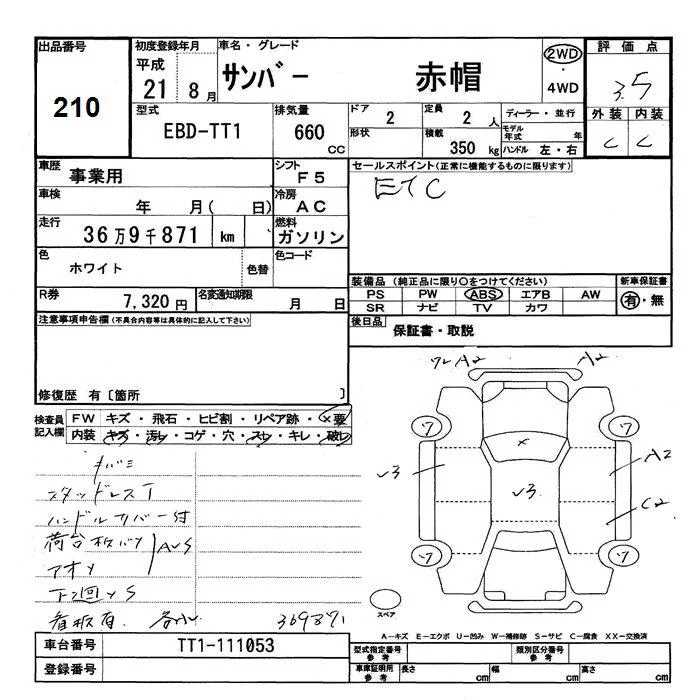 出品番号 初度登録年月 車名・グレード 2WD 評価点
210 平成 21 8月 サンバー 赤帽 ・ 3.5
4WD
型式 排気量 ドア 2 定員 2人 ディーラー・並行 外装 内装
EBD-TT1 660 CC 形状 積載 350 kg モデル年式 年 C C
ハンドル 左・右
車歴 事業用 シフト F5 セールスポイント(正常に機能するものに限ります)
車検 年 月( 日) 冷房 AC ETC
走行 36万9千871 km 燃料 ガソリン
色 ホワイト 色替 色コード
装備品(純正品に限り○をつけてください) 新車保証書
R券 7,320円 名変通知期限 月 日 PS PW ABS エアB AW 有・無
SR ナビ TV カワ
注意事項申告欄(不具合内容等は具体的に記入して下さい) 後日品 保証書・取説
ワレA2 A2
修復歴 有〔箇所 〕
検査員記入欄 FW キズ・飛石・ヒビ割・リペア跡・×要
内装 キズ・汚レ・コゲ・穴・スレ・キレ・破レ
ワ ワ
タバコ × A2
スタッドレスT v3 v3
ハンドルカバー付 C2
荷台板バリ AUS
アオリ ワ ワ
下廻りS
看板有 各小 369871 スペア
A－キズ E－エクボ U－凹み W－補修跡 S－サビ C－腐食 XX－交換済
車台番号 TT1-111053 型式指定番号 参考 類別区分番号 参考
登録番号 車庫証明用 参考 長さ cm 幅 cm 高さ cm